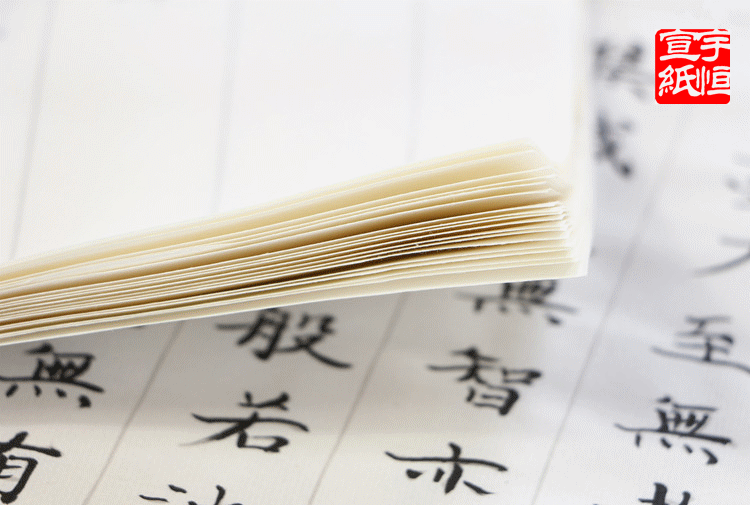 宇恒
宣紙
至無
無智亦
般若
無有